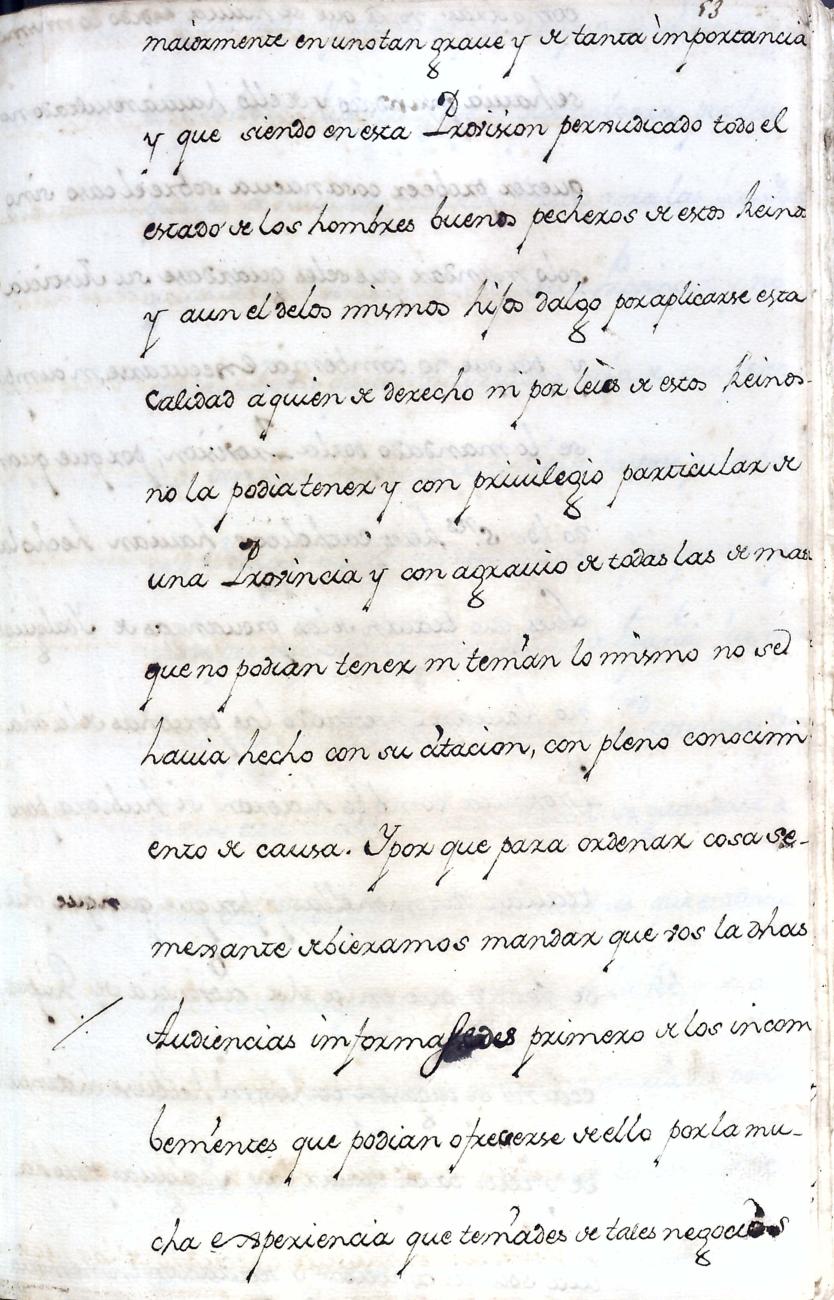 53
maiormente en uno tan graue y de tanta importancia
y que siendo en esta Provision perjudicado todo el
estado de los hombres buenos pecheros de estos Reinos
y aun el de los mismos hijos dalgo por aplicarse esta
Calidad a quien de derecho ni por leies de estos Reinos-
no la podia tener y con priuilegio particular de
una Provincia y con agrauio de todas las de mas
que no podian tener ni tenian lo mismo no se
hauia hecho con su citacion, con pleno conocimi
ento de causa. Y por que para ordenar cosa se-
mejante debieramos mandar que vos la dhas
Audiencias informasedes primero de los incom
benientes que podian ofrecerse de ello por la mu-
cha experiencia que teniades de tales negocios